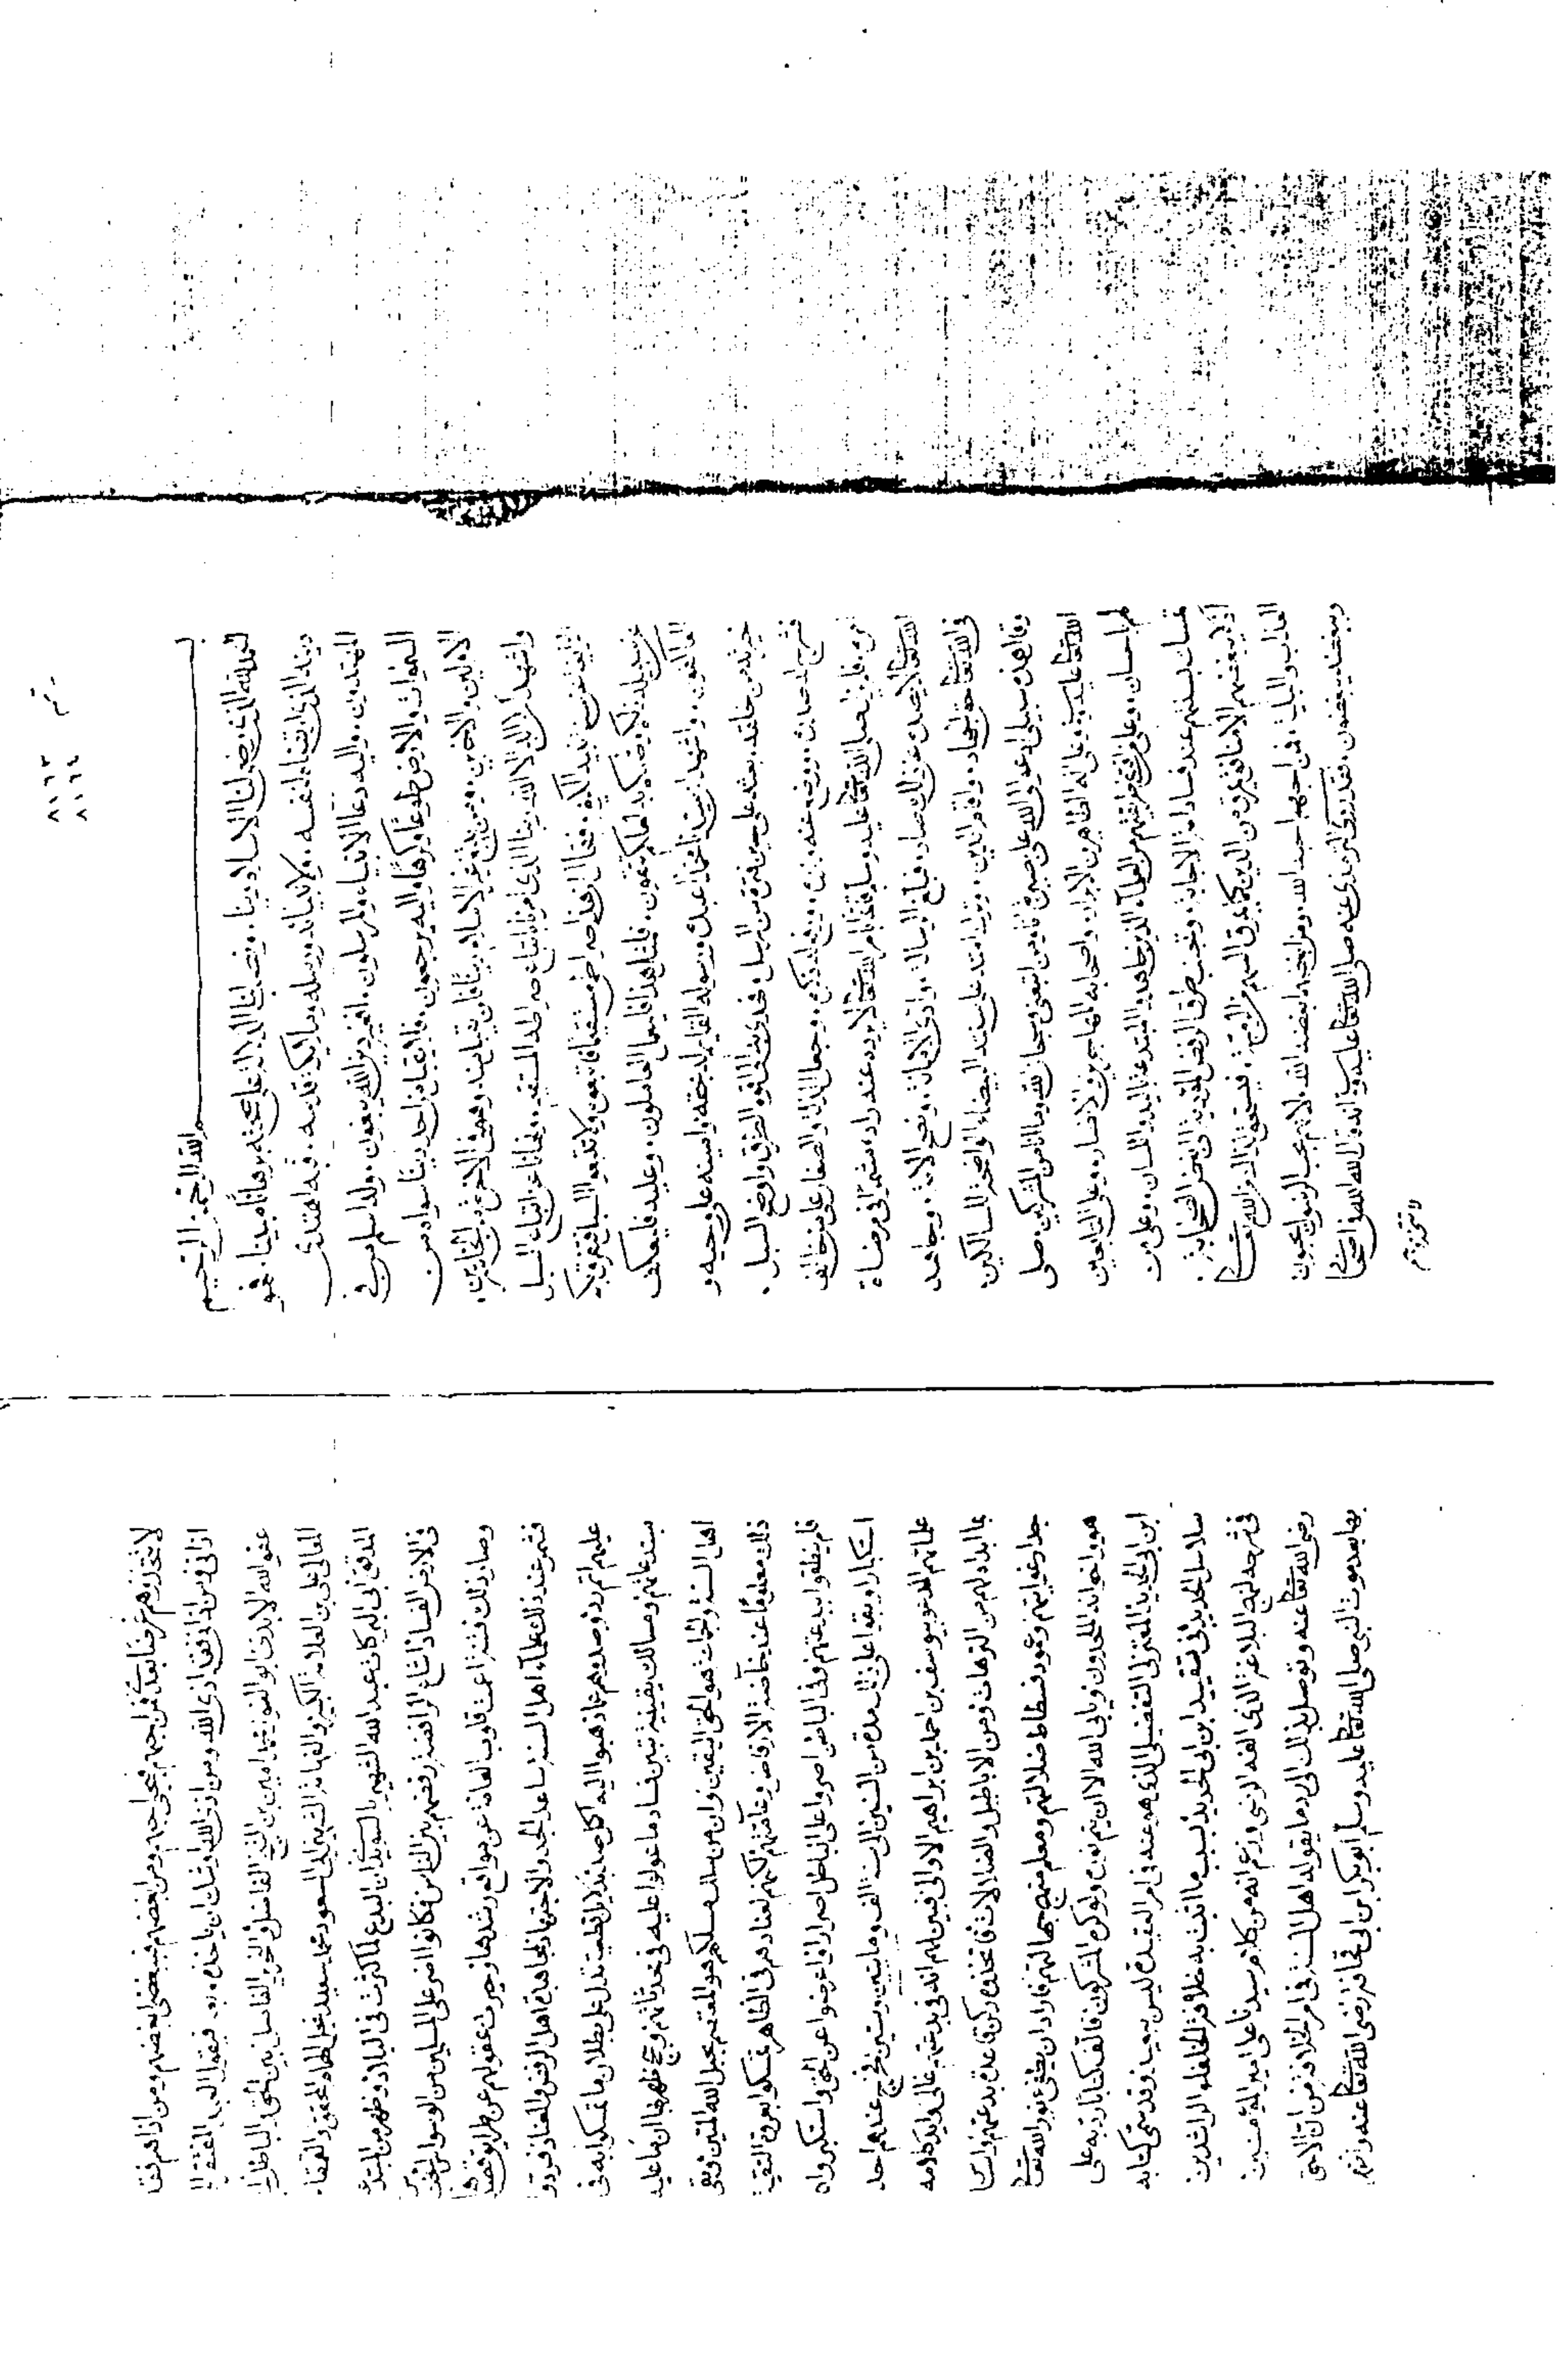 رقم
٨١٦٣
٨١٦٤
بسم الله الرحمن الرحيم
الحمد لله الذى رضى لنا الاسلام دينا ونصب لنا الدلالة على صحته برهانا مبينا فهو
دينه الذى ارتضاه لنفسه ولانبيائه ورسله وملائكة قدسه فبه اهتدى
المهتدون واليه دعا الانبياء والمرسلون افغير دين الله يبغون وله اسلم من فى
السموات والارض طوعا وكرها واليه يرجعون فلا يقبل من احد دينا سواه من
الاولين والاخرين ومن يبتغ غير الاسلام دينا فلن يقبل منه وهو فى الاخرة من الخاسرين
واشهد ان لا اله الا الله ربنا الذى امرنا باتباع صراطه المستقيم ونهانا عن اتباع السبل
فقال ان هذا صراطى مستقيما فاتبعوه ولا تتبعوا السبل فتفرق بكم
عن سبيله ذلكم وصاكم به لعلكم تتقون فلمثل هذا فليعمل العاملون وعليه فليعكف
العاكفون واشهد ان سيدنا محمدا عبده ورسوله القائم له بحقه وامينه على وحيه و
خيرته من خلقه بعثه على حين فترة من الرسل فهدى به الى اقوم الطرق واوضح السبل
فشرح له صدره ووضع عنه وزره ورفع له ذكره وجعل الذلة والصغار على من خالف
امره فلم يزل صلى الله تعالى عليه وسلم قائما بامر الله تعالى لا يرده عنه راد مشمرا فى مرضاة
الله تعالى لا يصده عن ذلك صاد فبلغ الرسالة وادى الامانة ونصح الامة وجاهد
فى الله تعالى حق الجهاد واقام الدين وترك امته على سنته البيضاء الواضحة للسالكين
وقال هذه سبيلى ادعو الى الله على بصيرة انا ومن اتبعنى وسبحان الله وما انا من المشركين صلى
الله تعالى عليه وعلى اله الطاهرين الابرار واصحابه المهاجرين والانصار وعلى التابعين
لهم باحسان وعلى من اقتفى طريقتهم من العلماء الذين جاهدوا المبتدعة باليد واللسان وعلى من
تمسك بسنتهم عند فساد امة الاجابة وتجنب طرق الرفض المؤدية الى بغض الصحابة
اذ لا يبغضهم الا منافق مرق من الدين كما يمرق السهم من الرمية فيستحق بذلك من الله تعالى
العذاب والبلية فمن احبهم احبه الله ومن ابغضهم ابغضه الله لانهم بحب الرسول يحبون
وببغضه يبغضون فقد روى الترمذى عنه صلى الله تعالى عليه وسلم انه قال الله الله فى اصحابى
لا تتخذوهم
لا تتخذوهم غرضا بعدى فمن احبهم فبحبى احبهم ومن ابغضهم فببغضى ابغضهم ومن اذاهم فقد
اذانى ومن اذانى فقد اذى الله ومن اذى الله اوشك ان ياخذه وبعد فيقول العبد المفتقر الى
عفو الله الابدى ابو الفوز محمد امين بن الشيخ الفاضل والتحرير الفاصل بين الحق والباطل ابى
المعالى على بن العلامة الكبير والفهامة الشهير ابى السعود محمد سعيد نجل الهمام المحقق والقمقام
المدقق ابى البركات عبد الله الشهير بالسويدى ان البدع لما كثرت فى البلاد وظهر من المبتدعة
فى الارض الفساد اشاع الرافضة رفضهم بين الناس فكانوا اضر على المسلمين من الوسواس الخناس
وصار ذلك فتنة اعمت قلوب العامة عن مواقع رشدها وحيرت عقولهم عن طرائق قصدها
فشمر عند ذلك علماء اهل السنة ساعد الجد والاجتهاد لمجاهدة اهل الرفض والعناد فردوا
عليهم اتم رد وصدوهم عما ذهبوا اليه اكمل صد بدلائل قطعية تدل على بطلان ما تمسكوا به فى
مبتدعاتهم ومسالك يقينية تبين فساد ما عولوا عليه فى محدثاتهم وحجج ظهر بها ان ما عليه
اهل السنة والجماعة هو الحق اليقين وان من سلك مسلكهم هو المعتصم بحبل الله المتين وبقى
ذلك معلوما عند خاصة الارفاض وعامتهم لكنهم لعنادهم فى الظاهر تمسكوا بعروة التقية
فلم ينطقوا ببدعتهم وفى الباطن اصروا على الباطل اصرارا واعرضوا عن الحق واستكبروا
استكبارا وبقوا على ذلك مدة من السنين الى سنة الف ومايتين وستين فخرج عند هم احد
علمائهم المدعو بيوسف بن احمد بن ابراهيم الاوالى فبين لهم انه فى بدعتهم غالى وايد كلامه
بما ابداه لهم من الترهات ومن الاباطيل والضلالات فاتخذوه ركن قاعدة بدعتهم واساس
جدار غوايتهم وعمود فسطاط ضلالتهم ومعلم منهج جهالتهم فاراد ان يطفئ نور الله تعالى
هو واخوانه الملحدون ويابى الله الا ان يتم نوره ولو كره المشركون فالف كتابا رد به على
ابن ابى الحديد المعتزلى التفضيلى الذى هو عنده فى امر العقيدة ليس ببعيد وقد سمى كتابه
سلاسل الحديد فى تقييد ابن ابى الحديد بسبب ما اثبت به خلافة الخلفاء الراشدين
فى شرحه لنهج البلاغة الذى الفه الرضى وزعم انه من كلام سيدنا على امير المؤمنين
رضى الله تعالى عنه وتوصل بذلك الى رد ما يقوله اهل السنة فى امر الخلافة من ان الاحق
بها بعد موت النبى صلى الله تعالى عليه وسلم ابو بكر ابن ابى قحافة رضى الله تعالى عنه وانهم